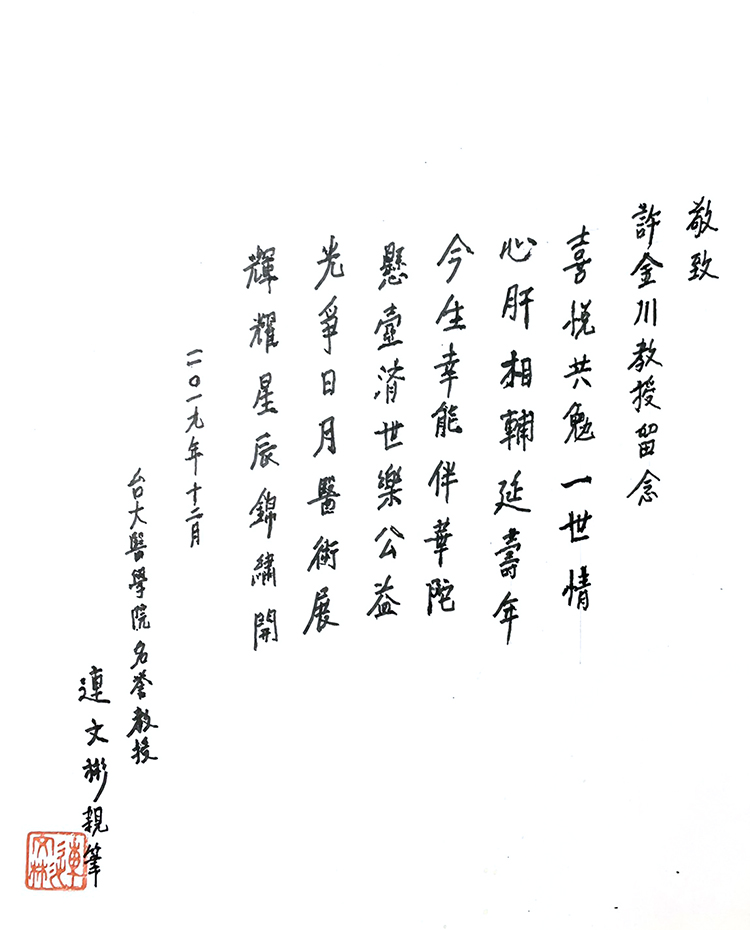 敬致
許金川教授留念
喜悅共勉一世情
心肝相輔延壽年
今生幸能伴華陀
懸壺濟世樂公益
光爭日月醫術展
輝耀星辰錦繡開
二〇一九年十二月
台大醫學院名譽教授
連文彬親筆